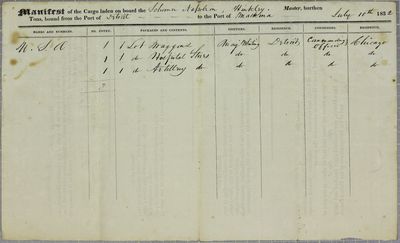 Manifest of the Cargo laden on board the Schooner Napoleon Hinkley, Master, burthen
Tons, bound from the Port of Detroit to the Port of Mackina July 10th 1832
MARKS AND NUMBERS. NO. ENTRY. PACKAGES AND CONTENTS. SHIPPERS. RESIDENCE. CONSIGNEES. RESIDENCE.
1 1 Lot Waggons Maj Whiting Detroit Commanding Officer Chicago
1 1 do Hospital Stores do do do do
1 1 do Artillery do do do do do